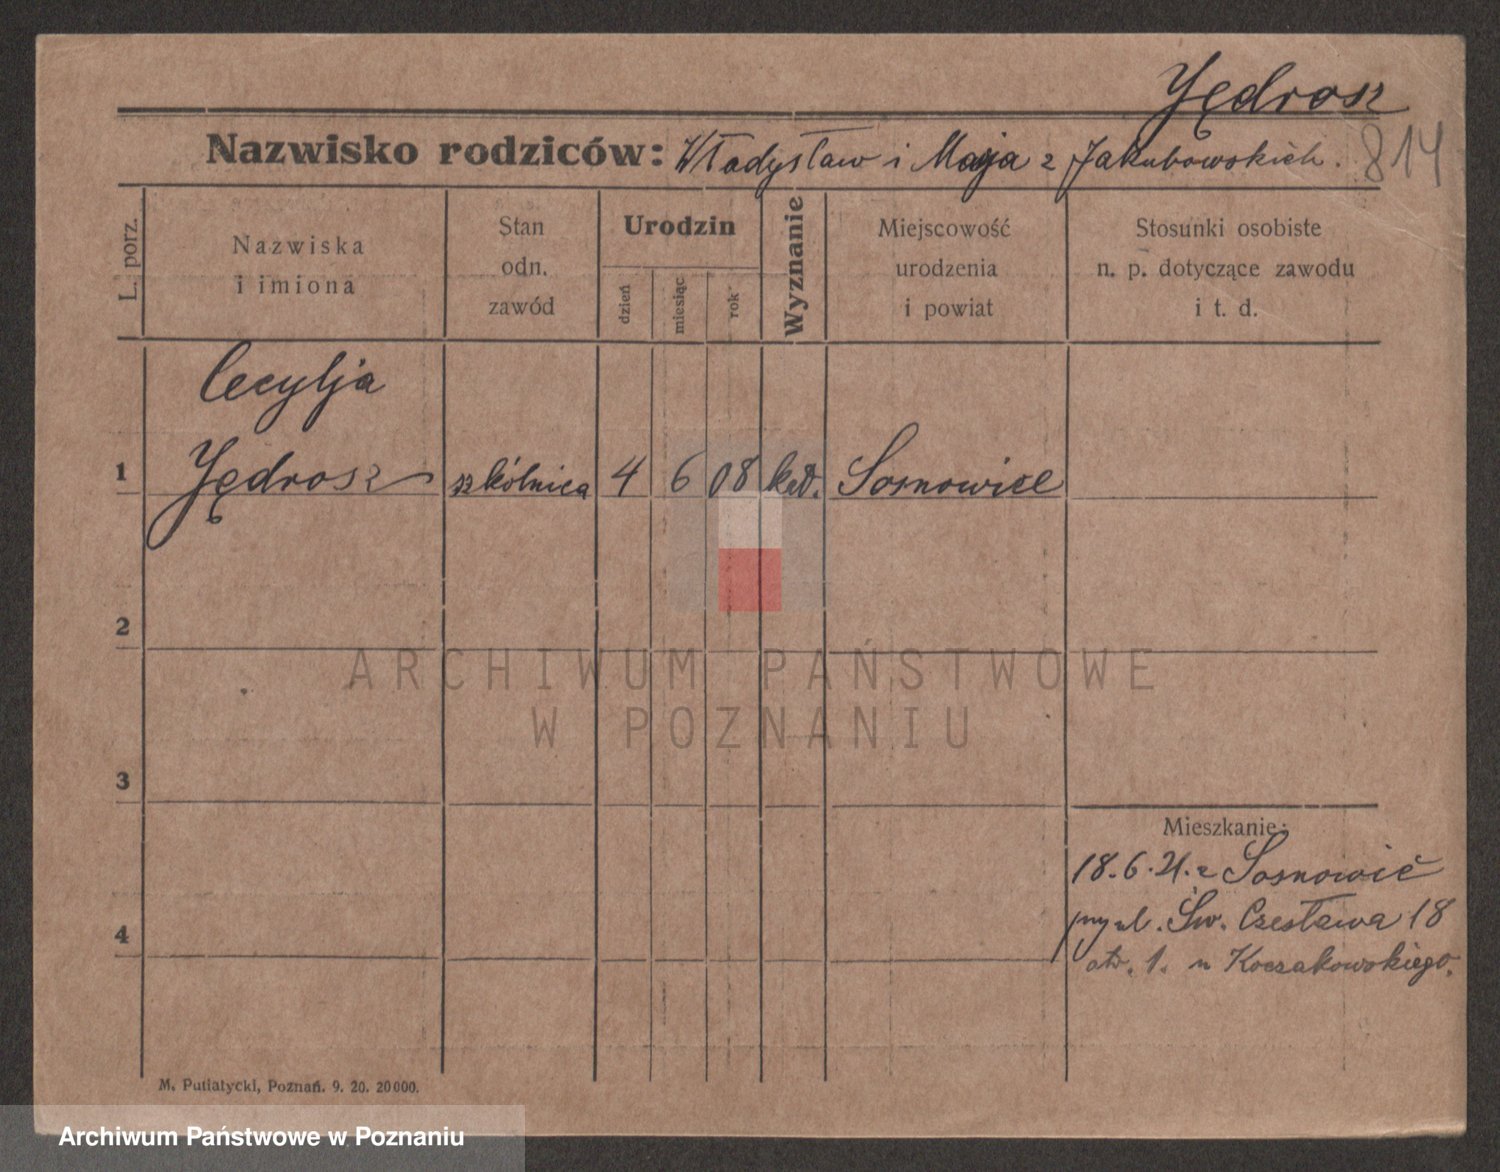 Jędrosz
Nazwisko rodziców: Władysław i Maja z Jakubowskich. 814
L. porz.
Nazwiska
i imiona
Stan
odn.
zawód
Urodzin
dzień
miesiąc
rok
Wyznanie
Miejscowość
urodzenia
i powiat
Stosunki osobiste
n. p. dotyczące zawodu
i t. d.
Cecylja
1 Jędrosz szkólnica 4 6 08 kat. Sosnowice
2
ARCHIWUM PAŃSTWOWE
W POZNANIU
3
Mieszkanie:
18.6.21. z Sosnowic
przy ul. Św. Czesława 18
4
otw. 1. u Koczakowskiego.
M. Putiatycki, Poznań. 9. 20. 20000.
Archiwum Państwowe w Poznaniu